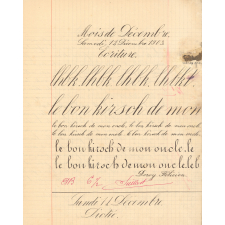 Mois de Décembre.
Samedi 12 Décembre 1903
Ecriture.
lhlk. lhlk lhlk. lhlkl
le bon kirsch de mon
le bon kirsch de mon oncle. le bon kirsch de mon oncle.
le bon kirsch de mon oncle. le bon kirsch de mon oncle.
le bon kirsch de mon oncle. le
le bon kirsch de mon onc le. leb
Lundi 14 Décembre.
Dictée